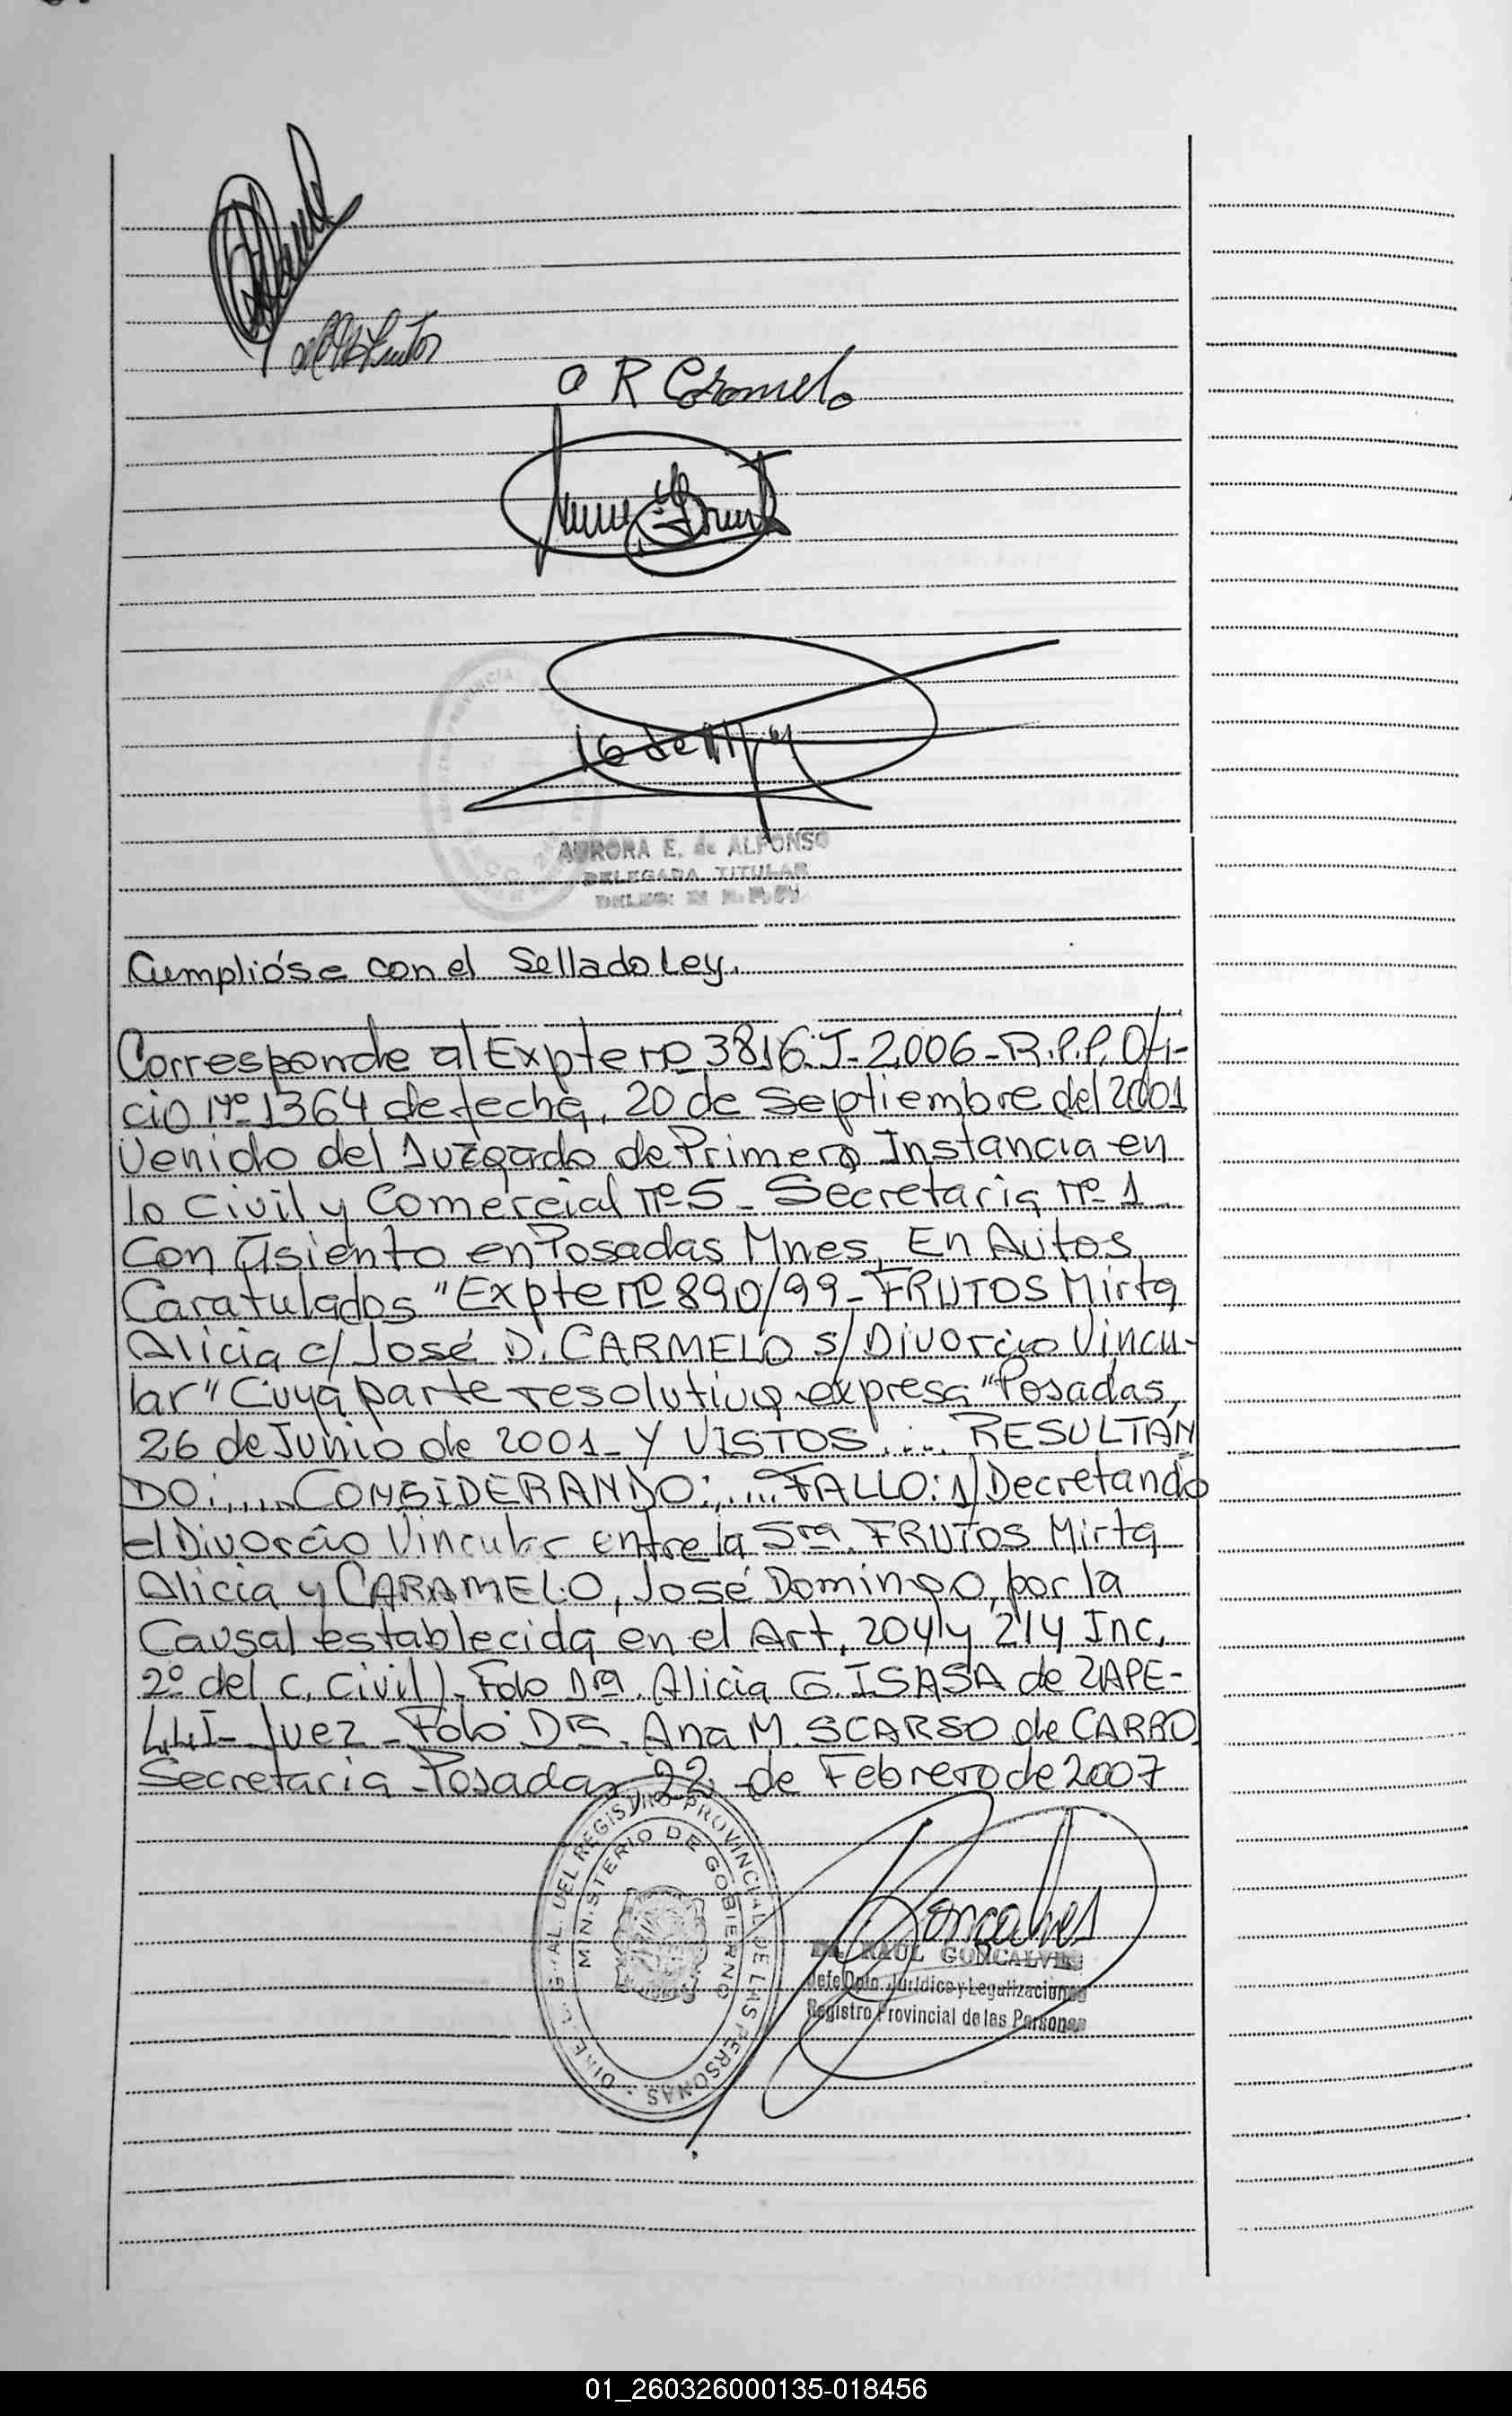 a R Caramelo
AURORA E. de ALFONSO
DELEGADA TITULAR
Cumplióse con el Sellado Ley.
Corresponde al Expte nº 3816-J-2006-R.P.P. Ofi-
cio Nº 1364 de fecha, 20 de Septiembre del 2001
Venido del Juzgado de Primera Instancia en
lo Civil y Comercial nº 5 - Secretaria nº 1
Con Asiento en Posadas Mnes, En Autos
Caratulados "Expte nº 890/99 - FRUTOS Mirta
Alicia c/ José D. CARMELO s/ Divorcio Vincu-
lar" Cuya parte resolutiva expresa "Posadas,
26 de Junio de 2001 - Y VISTOS..... RESULTAN
DO:..... CONSIDERANDO:..... FALLO: 1) Decretando
el Divorcio Vincular entre la Sra. FRUTOS Mirta
Alicia y CARAMELO, José Domingo, por la
Causal establecida en el Art. 204 y 214 Inc.
2º del C. Civil). Fdo Dra. Alicia G. ISASA de ZAPE-
LLI - Juez - Fdo Dra. Ana M. SCARSO de CARBO
Secretaria - Posadas, 22 de Febrero de 2007
DIREC. GRAL. DEL REGISTRO PROVINCIAL DE LAS PERSONAS
MINISTERIO DE GOBIERNO
Goncalves
Dr. RAUL GONCALVES
Jefe Dpto. Jurídico y Legalizaciones
Registro Provincial de las Personas
01_260326000135-018456